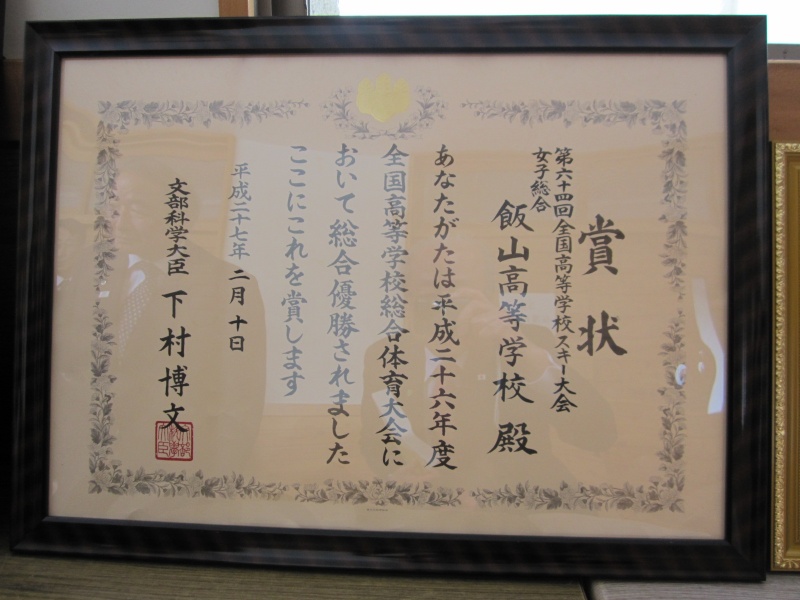 賞状
第六十四回全国高等学校スキー大会
女子総合
飯山高等学校殿
あなたがたは平成二十六年度
全国高等学校総合体育大会に
おいて総合優勝されました
ここにこれを賞します
平成二十七年二月十日
文部科学大臣 下村博文